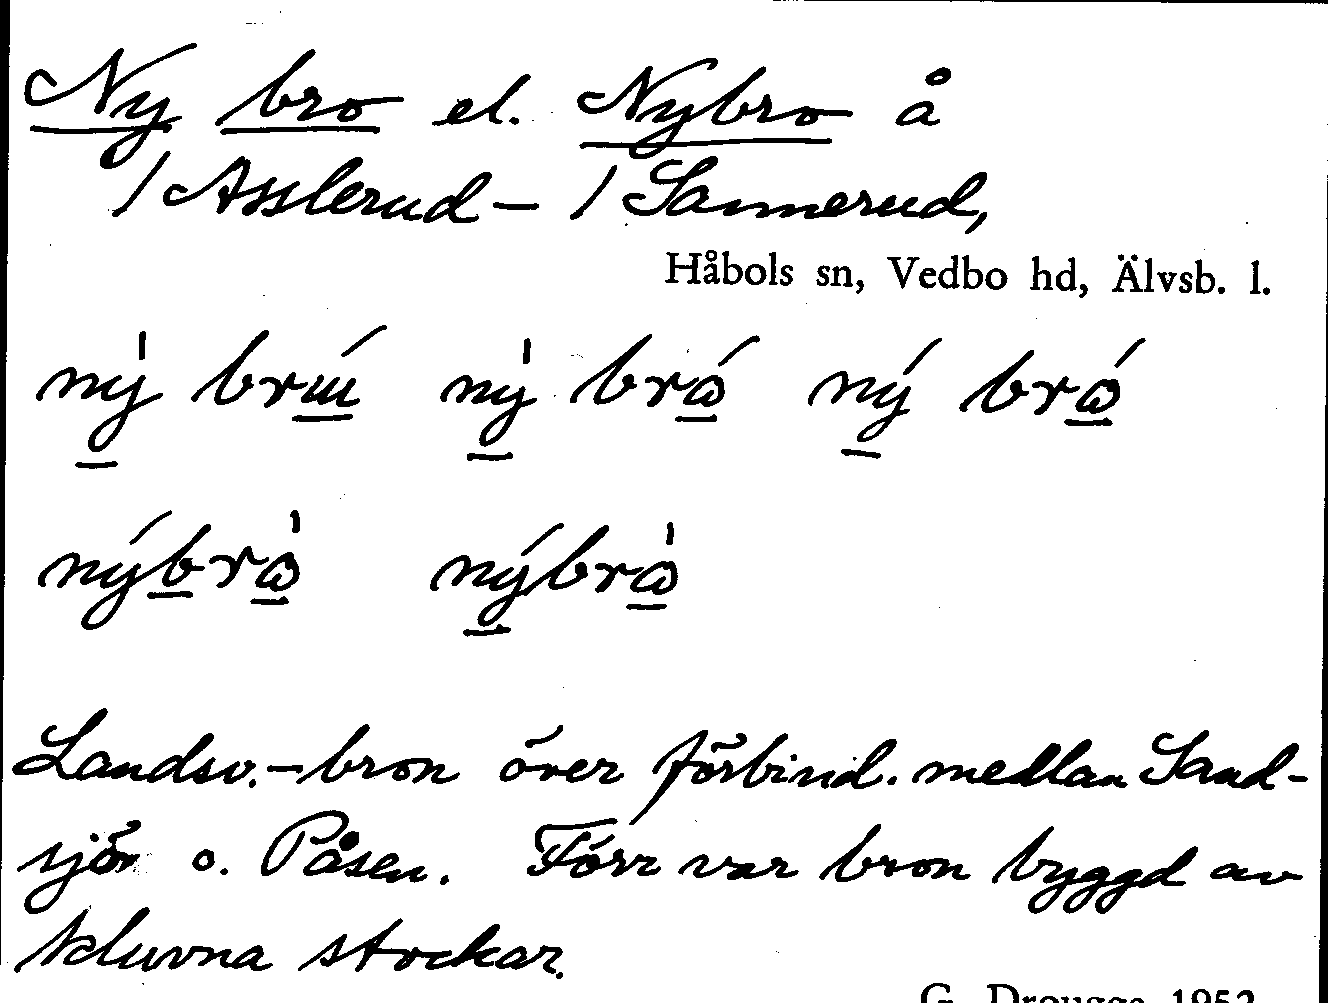 Ny bro el. Nybro å
/ Asslerud – / Sannerud,
Håbols sn, Vedbo hd, Älvsb. l.
ný brɯ́ ný brώ ný brώ
nýbrὼ nýbrὼ
Landsv.-bron över förbind. mellan Sand-
sjön o. Påsen. Förr var bron byggd av
kluvna stockar.
G. Drougge 1952